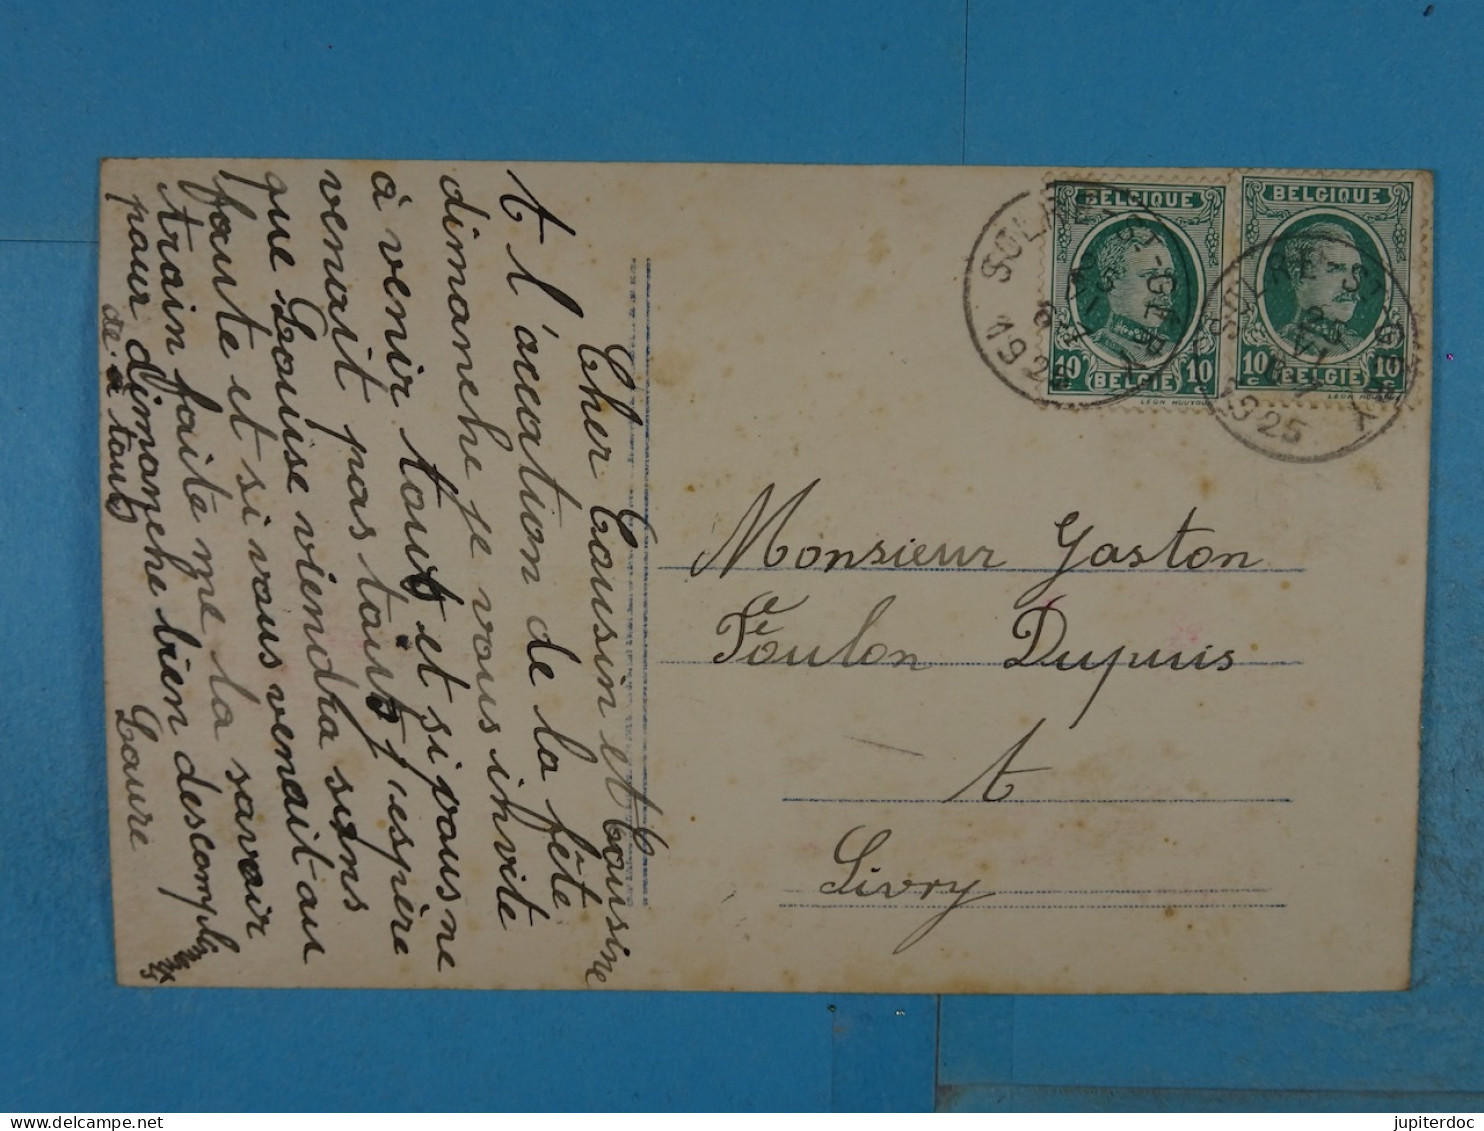 Cher Cousin et Cousine
t l'ocation de la fête
dimanche je vous invite
à venir tout et si vous ne
venait pas tous j'espère
que Louise viendra sans
faute et si vous venait au
train faite me la savoir
pour dimanche bien des compli
de à tous
Laure
BELGIQUE
10 c BELGIE 10 c
LEON HOUYOUX
BELGIQUE
10 c BELGIE 10 c
SOLRE-ST-GERY
1925
SOLRE-ST-GERY
1925
Monsieur Gaston
Foulon Dupuis
t
Sivry
jupiterdoc